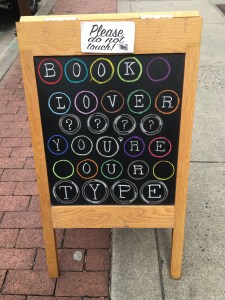 Please
do not
touch!
BOOK
LOVER
????
YOU'RE
OUR
TYPE